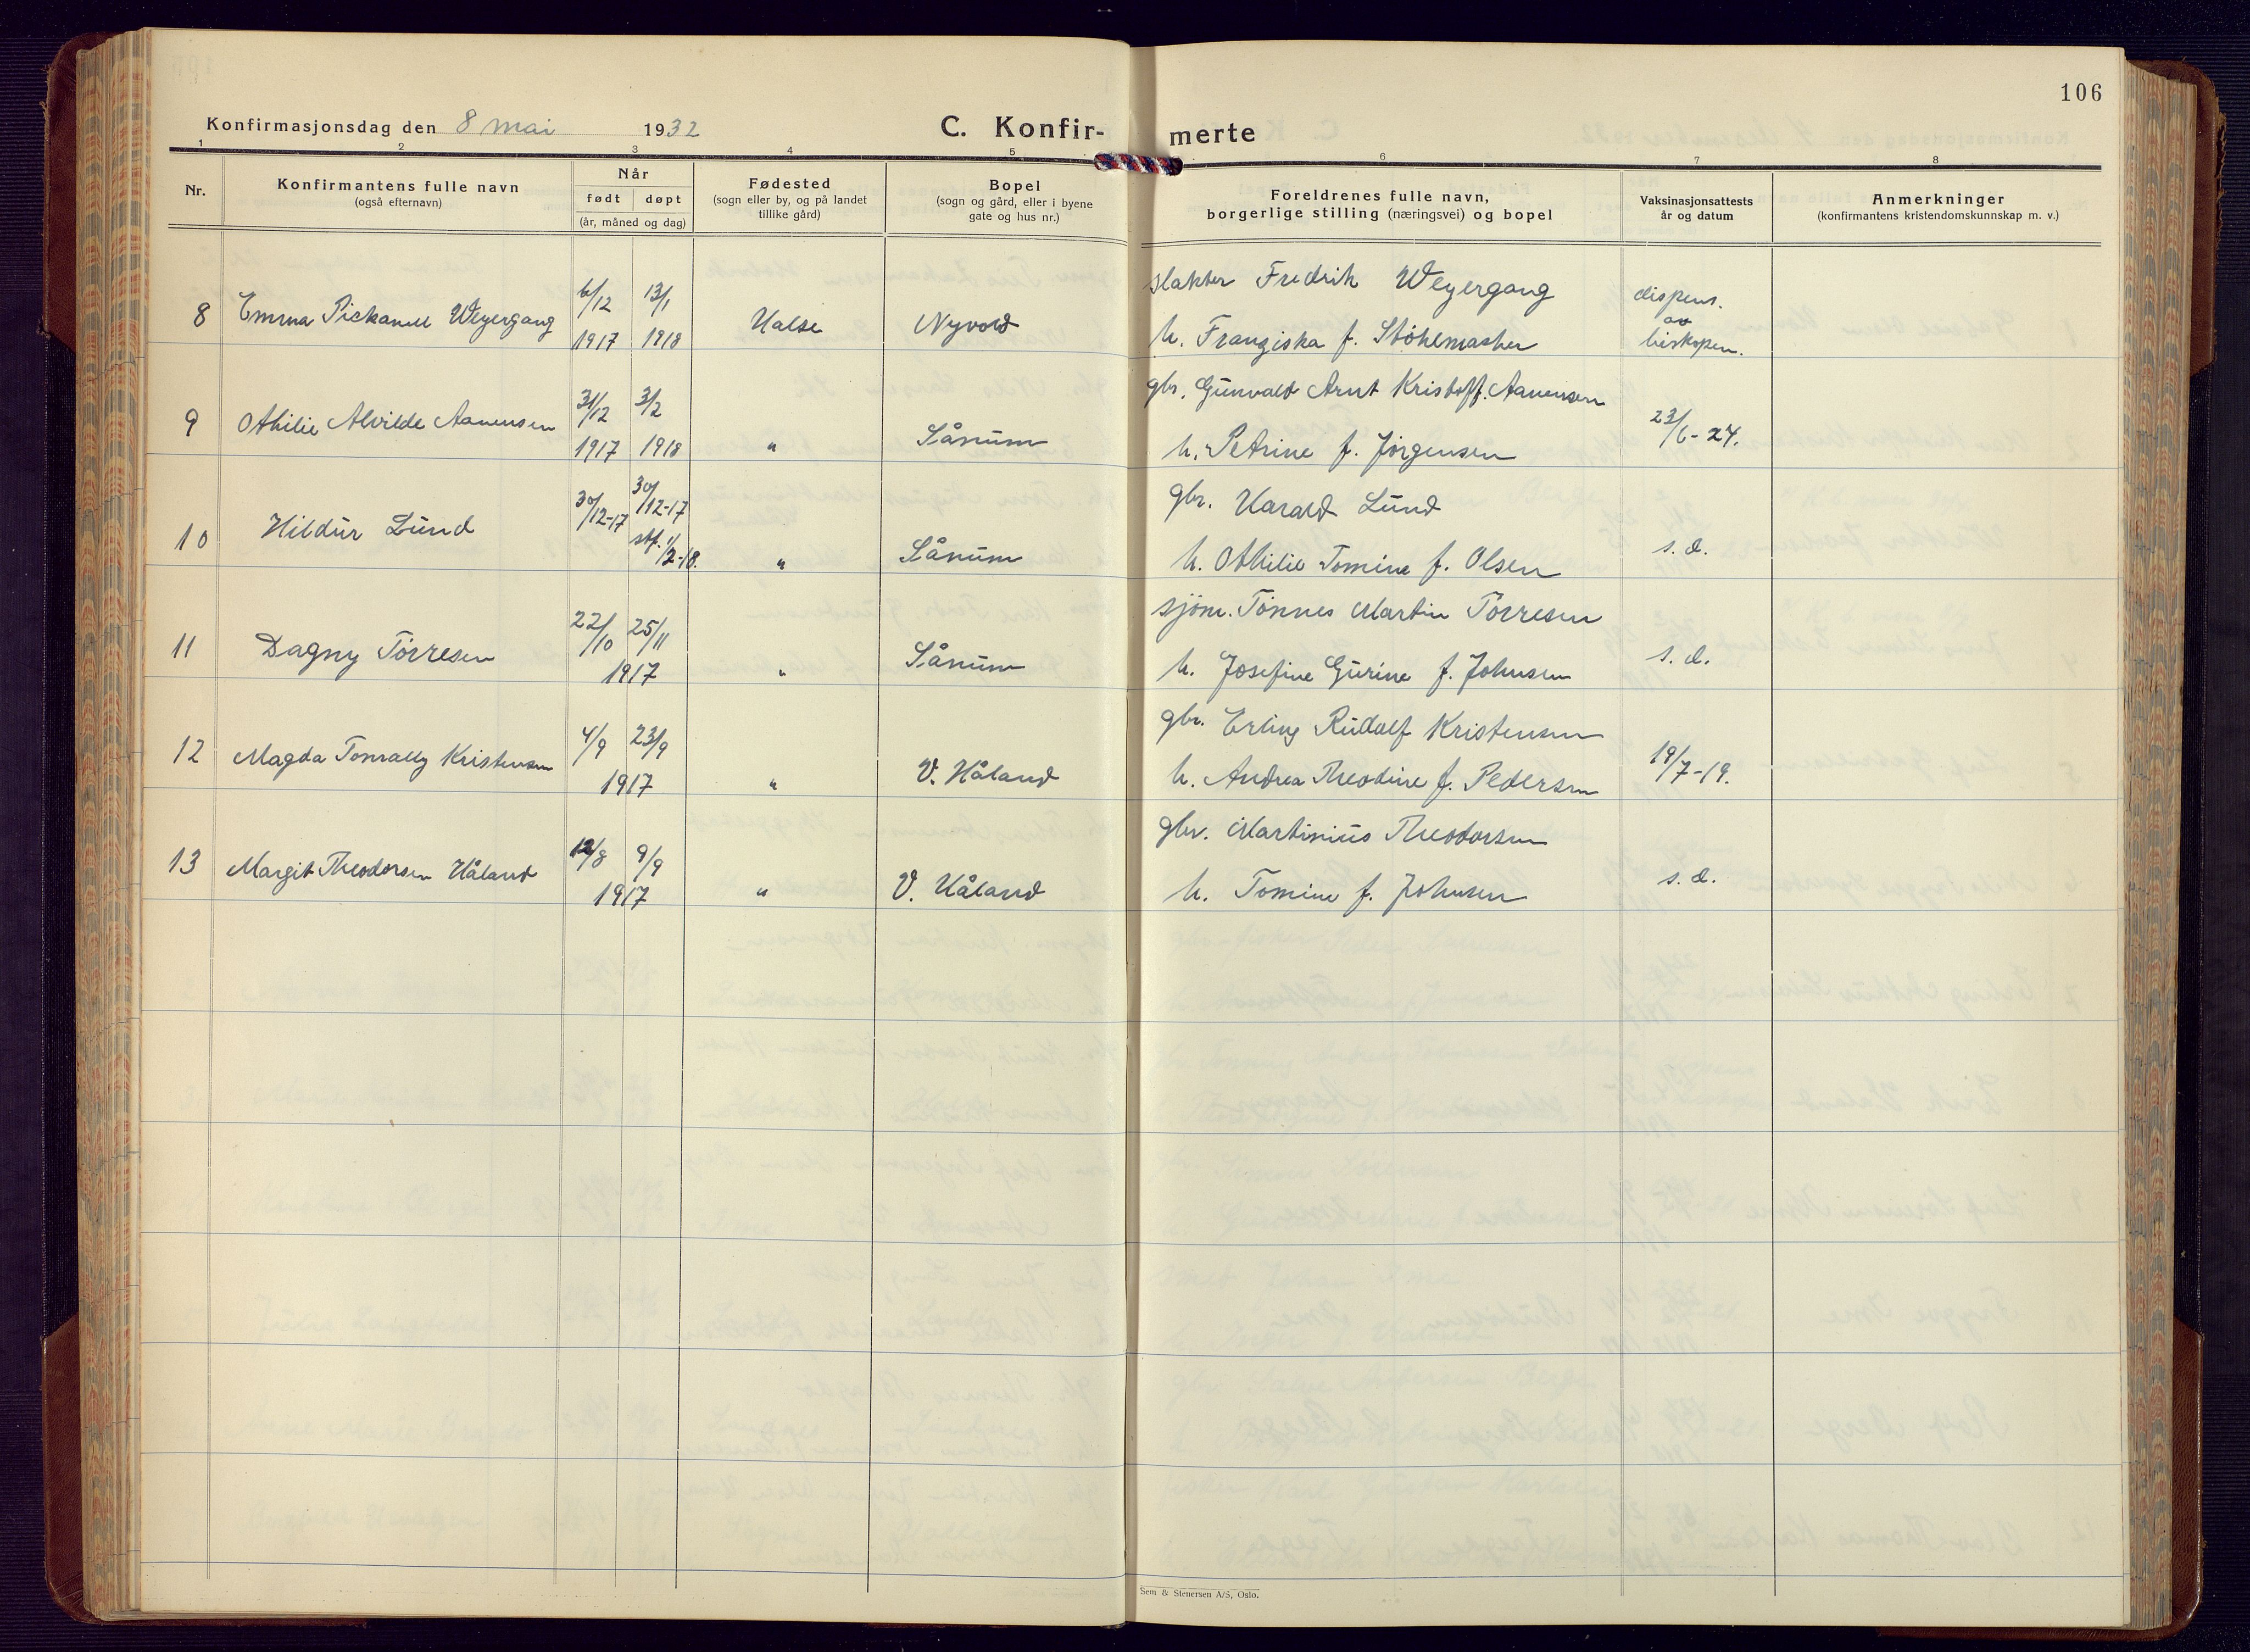 106
Konfirmasjonsdag den 8 mai 1932
C. Konfir- merte
1 2 3 4 5 6 7 8
Nr.
Konfirmantens fulle navn
(også efternavn)
Når
født døpt
(år, måned og dag)
Fødested
(sogn eller by, og på landet
tillike gård)
Bopel
(sogn og gård, eller i byene
gate og hus nr.)
Foreldrenes fulle navn,
borgerlige stilling (næringsvei) og bopel
Vaksinasjonsattests
år og datum
Anmerkninger
(konfirmantens kristendomskunnskap m. v.)
6/12 13/1 slakter Fredrik Weyergang dispens.
av
8 Emma Weyergang 1917 1918 Halse Nyvold h. Franziska f. biskopen.
31/12 3/2 gbr. Gunvald Arnt Kristoff. Aanensen
9 Othilie Alvilde Aanensen 1917 1918 " Sånum h. Petrine f. Jørgensen 23/6-24.
30/12-17 30/12-17 gbr. Harald Lund
10 Hildur Lund stf. 1/2-18. " Sånum h. Othilie Tomine f. Olsen s. d.
22/10 25/11 sjøm. Tønnes Martin Tørresen
11 Dagny Tørresen 1917 " Sånum h. Josefine Gurine f. Johnsen s. d.
4/9 23/9 gbr. Erling Rudolf Kristensen
12 Magda Kristensen 1917 " V. Håland h. Andrea Theodine f. Pedersen 19/7-19.
12/8 9/9 gbr. Martinius Theodorsen
13 Margit Theodorsen Håland 1917 " V. Håland h. Tomine f. Johnsen s. d.
Sem & Stenersen A/S, Oslo.